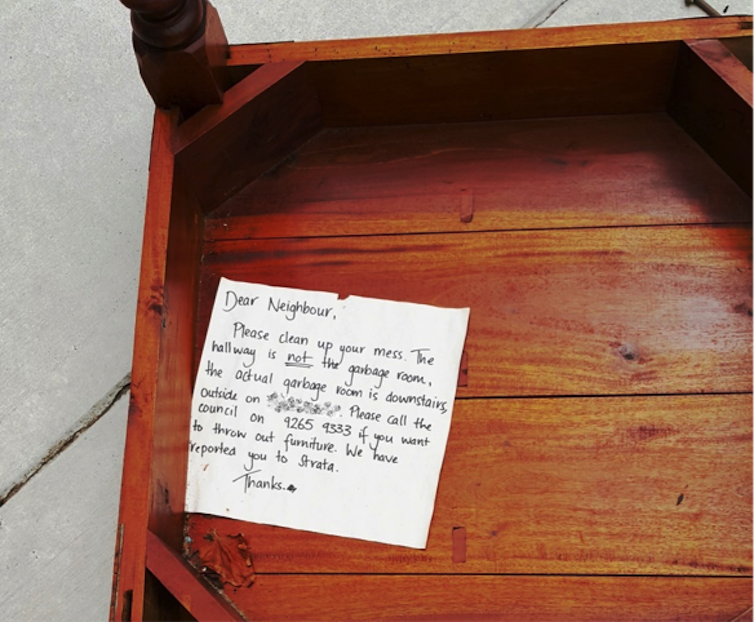 Dear Neighbour,
Please clean up your mess. The
hallway is not the garbage room,
the actual garbage room is downstairs,
outside on . Please call the
council on 9265 9333 if you want
to throw out furniture. We have
reported you to Strata.
Thanks.